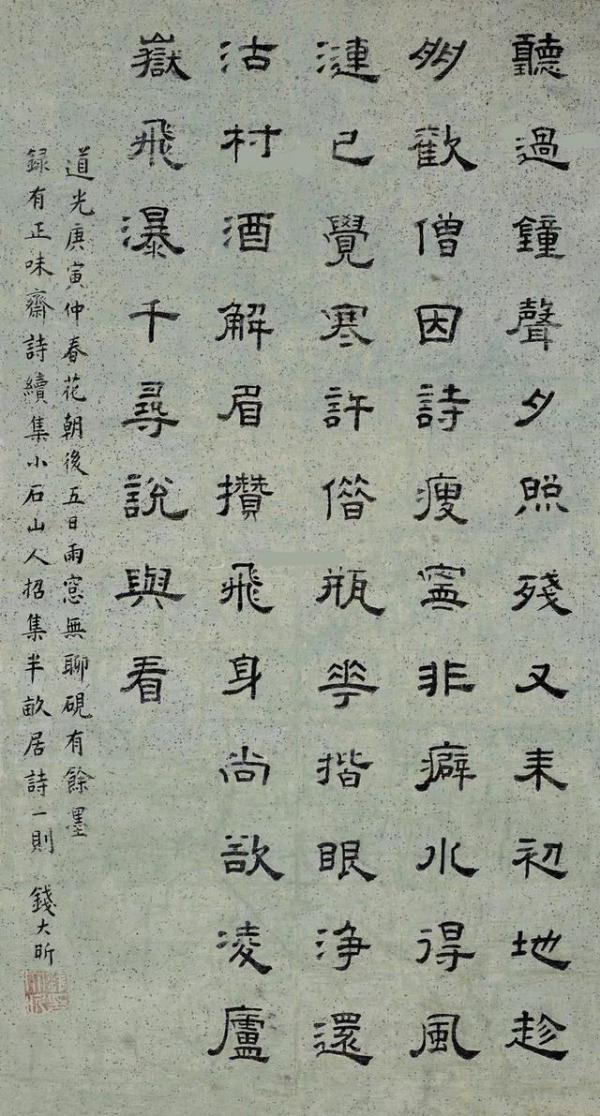 聽過鐘聲夕照殘又来初地趁
多歡僧因詩瘦寧非癖水得風
漣已覺寒許借瓶華揩眼淨還
沽村酒解眉攢飛身尚欲凌廬
嶽飛瀑千尋說與看
道光庚寅仲春花朝後五日雨窓無聊硯有餘墨
録有正味齋詩續集小石山人招集半畝居詩一則 錢大昕